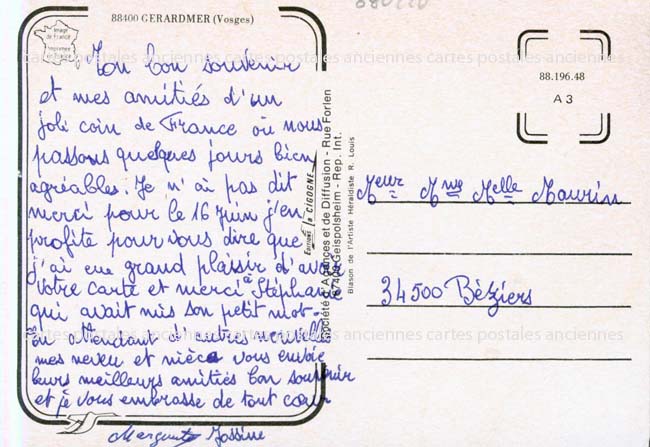 88400 GERARDMER (Vosges)
Image
de France
Mon bon souvenir
et mes amitiés d'un
joli coin de France où nous
passons quelques jours bien
agréables. Je n'ai pas dit
merci pour le 16 Juin j'en
profite pour vous dire que
j'ai eue grand plaisir d'avoir
votre carte et merci à Stéphane
qui avait mis son petit mot.
en attendant d'autres nouvelles
mes neveu et nièce vous envoie
leurs meilleurs amitiés bon souvenir
et je vous embrasse de tout cœur
EDITIONS la CIGOGNE
Société d'Agences et de Diffusion - Rue Forlen
67400 Geispolsheim - Rep. Int.
Blason de l'Artiste Héraldiste R. Louis
88.196.48
A 3
Meur Mme Melle Maurin
34500 Bèziers
cartes postales anciennes cartes postales anciennes cartes postales anciennes
cartes postales anciennes cartes postales anciennes cartes postales anciennes